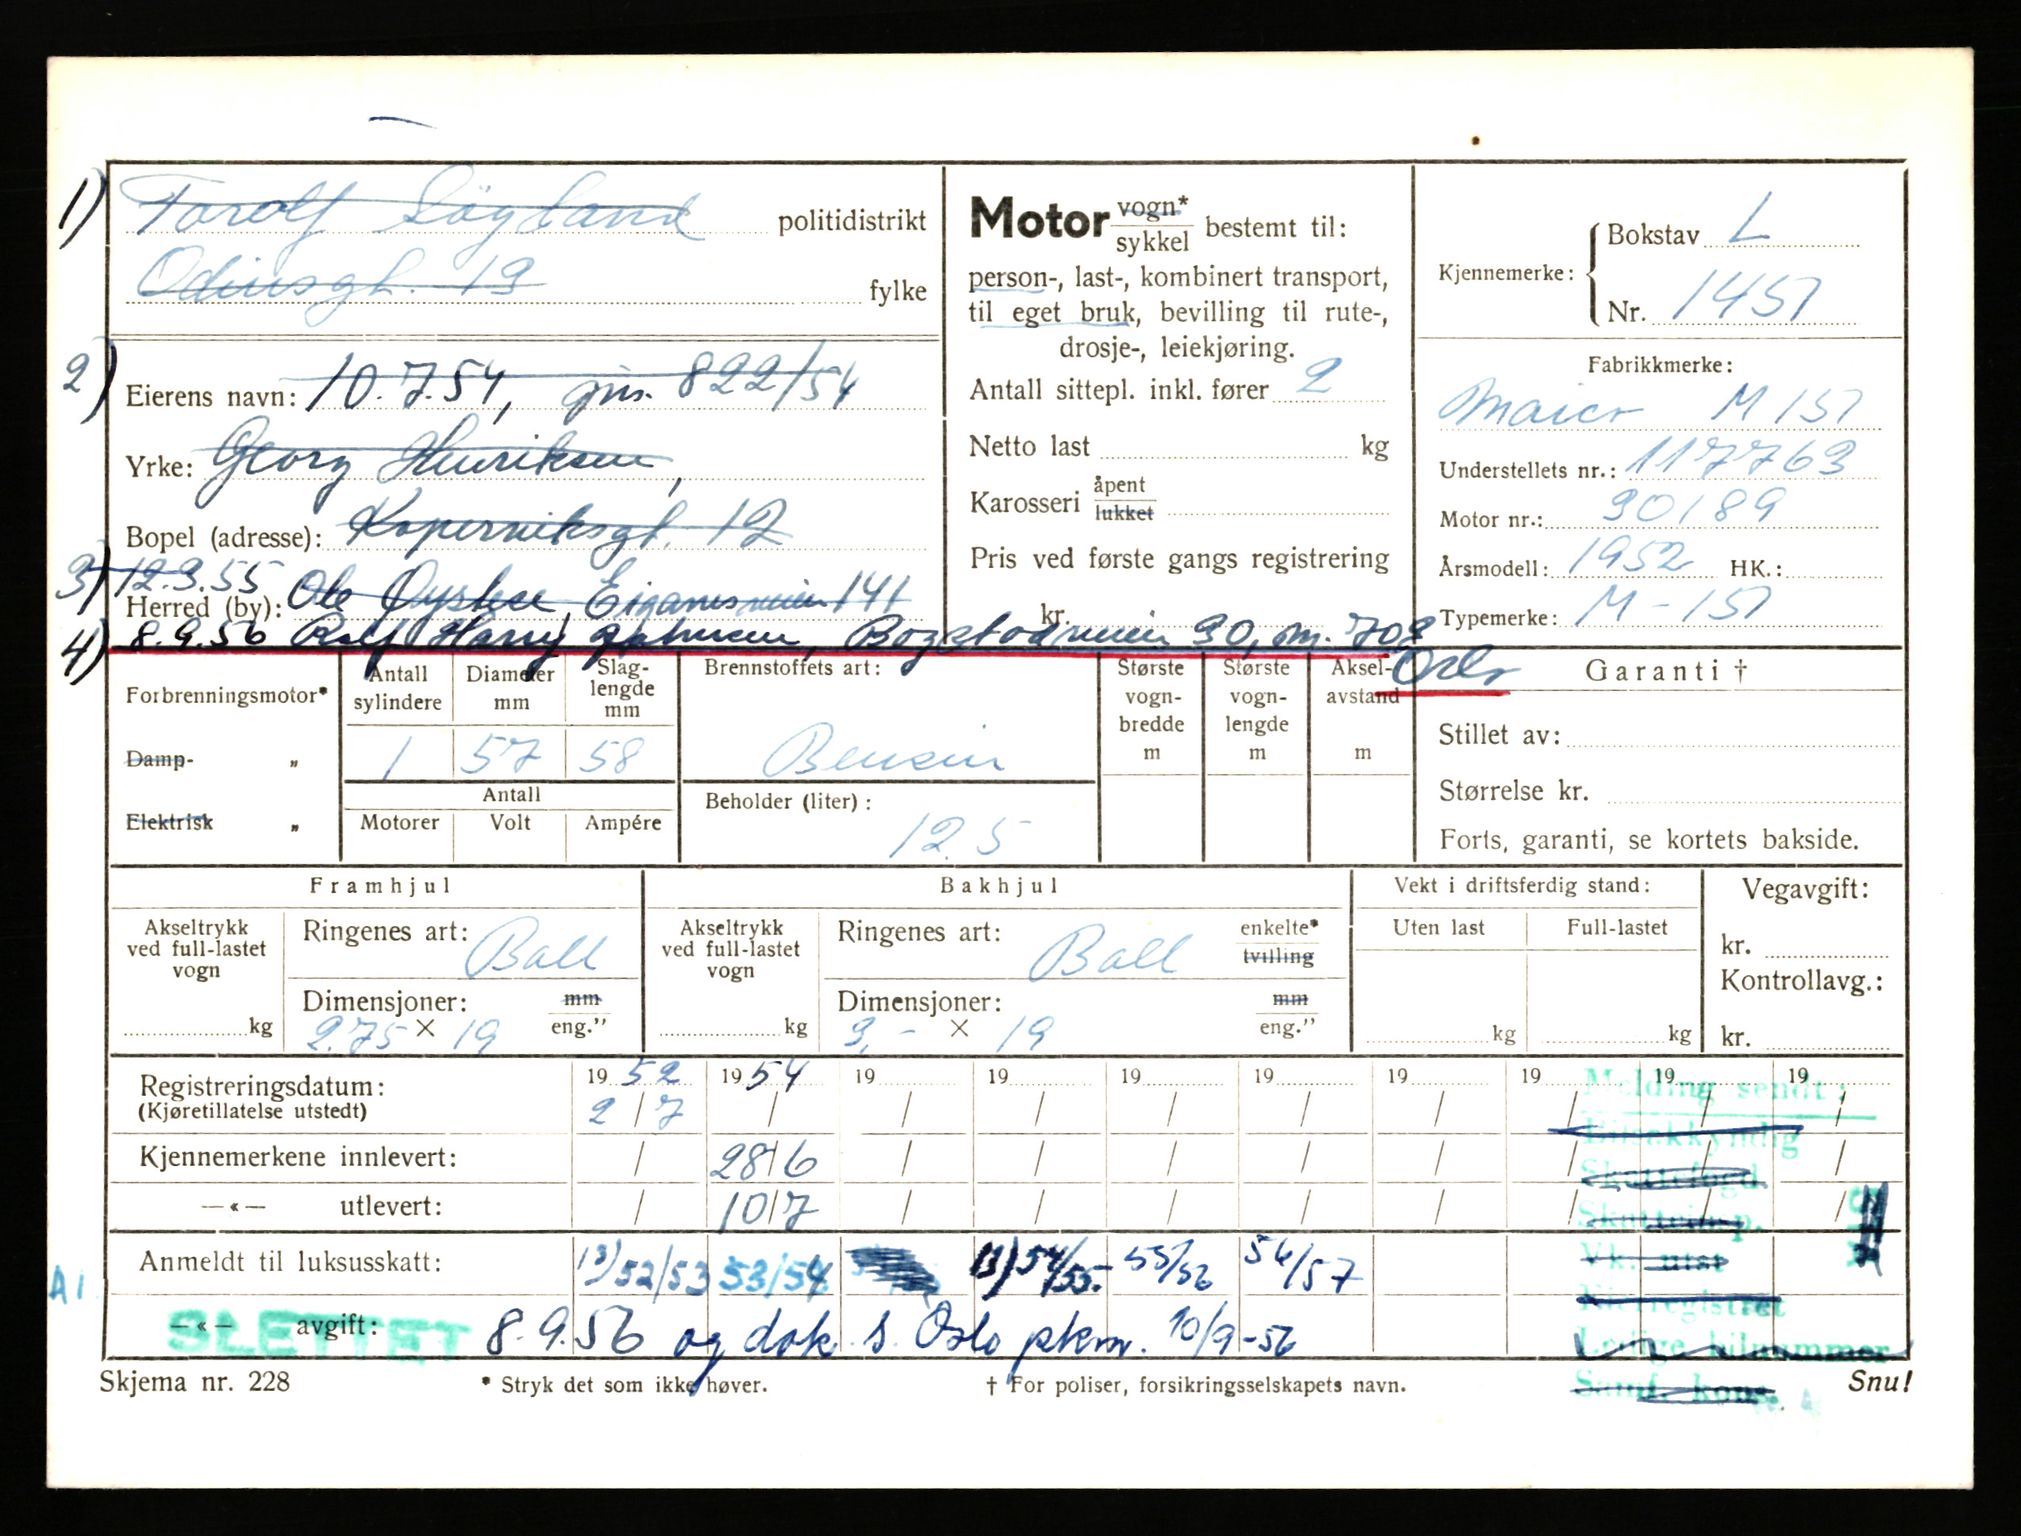 1) Torolf Løyland politidistrikt
Odinsgt. 19 fylke
2) Eierens navn: 10.7.54, jnr. 822/54
Yrke: Georg Henriksen,
Bopel (adresse): Koperniksgt. 12
3) 12.3.55 Ole Øystese, Eiganesveien 141
Herred (by):
4) 8.9.56 Rolf Harry Johnsen, Bogstadveien 30, m. 708
Oslo
Motor vogn* / sykkel bestemt til:
person-, last-, kombinert transport,
til eget bruk, bevilling til rute-,
drosje-, leiekjøring.
Antall sittepl. inkl. fører 2
Netto last kg
Karosseri åpent / lukket
Pris ved første gangs registrering
kr.
Kjennemerke: Bokstav L
Nr. 1451
Fabrikkmerke:
Maico M 151
Understellets nr.: 117763
Motor nr.: 30189
Årsmodell: 1952 HK.:
Typemerke: M-151
Forbrenningsmotor*
Damp- „
Elektrisk „
Antall sylindere 1
Diameter mm 57
Slag-lengde mm 58
Antall
Motorer Volt Ampére
Brennstoffets art:
Bensin
Beholder (liter):
12.5
Største vogn-bredde m
Største vogn-lengde m
Aksel-avstand m
Garanti †
Stillet av:
Størrelse kr.
Forts. garanti, se kortets bakside.
Framhjul
Akseltrykk ved full-lastet vogn kg
Ringenes art: Ball
Dimensjoner: mm
2.75 × 19 eng.”
Bakhjul
Akseltrykk ved full-lastet vogn kg
Ringenes art: Ball enkelte* / tvilling
Dimensjoner: mm
3,- × 19 eng.”
Vekt i driftsferdig stand:
Uten last Full-lastet
kg kg
Vegavgift:
kr.
Kontrollavg.:
kr.
Registreringsdatum: 1952 1954 19 19 19 19 19 19 19 19
(Kjøretillatelse utstedt) 2/7 / / / / / / / / /
Kjennemerkene innlevert: / 28/6 / / / / / / / /
—«— utlevert: / 10/7 / / / / / / / /
Anmeldt til luksusskatt: 13) 52/53 53/54 13) 54/55. 55/56 56/57
A1
—«— avgift: SLETTET 8.9.56 og dok. s. Oslo pkm. 10/9-56
Melding sendt:
Bilsakkyndig
Skattefogd
Skatteinsp.
Vk. utst
Nierregistret
Ledige bilnummer
Samf. kons.
Skjema nr. 228
* Stryk det som ikke høver.
† For poliser, forsikringsselskapets navn.
Snu!